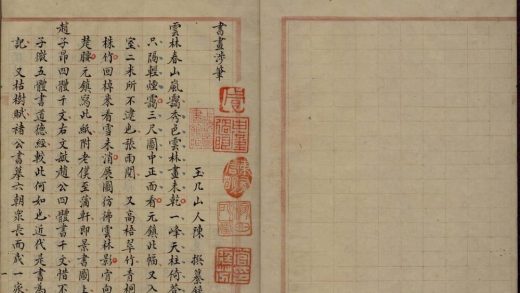 書畫涉筆
玉几山人陳 撰纂
雲林春山嵐靄秀色雲林畫未乾一峰天柱倚
只隔輕煙靄三尺圖中正面看元鎮此幅又入
室二未所不逮也張雨閒 又高梧翠竹青桐
楳竹回棹來看雲未消展圖彷彿雲林影肯向
楚腰元鎮寫此紙附老僕至蒲軒即景書圖上
趙子昂四體千文右文敏趙公四體書千文惜不
子徵五體書道德經較此何如也近代是書為
記 又枯樹賦褚公書摹六朝眾長而成一家